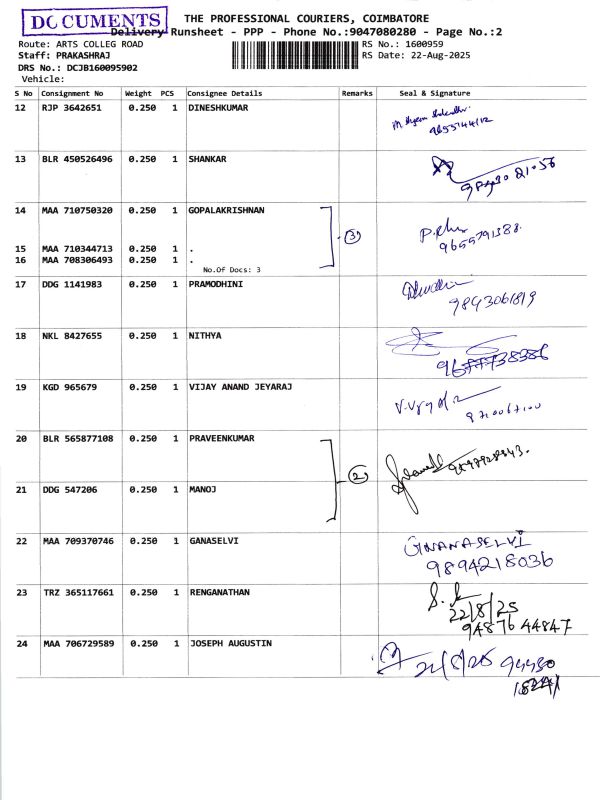 DOCUMENTS
THE PROFESSIONAL COURIERS, COIMBATORE
Delivery Runsheet - PPP - Phone No.:9047080280 - Page No.:2
Route: ARTS COLLEG ROAD
RS No.: 1600959
Staff: PRAKASHRAJ
RS Date: 22-Aug-2025
DRS No.: DCJB160095902
Vehicle:
S No Consignment No Weight PCS Consignee Details Remarks Seal & Signature
12 RJP 3642651 0.250 1 DINESHKUMAR
13 BLR 450526496 0.250 1 SHANKAR
14 MAA 710750320 0.250 1 GOPALAKRISHNAN
3
9655791388
15 MAA 710344713 0.250 1 .
16 MAA 708306493 0.250 1 .
No.Of Docs: 3
17 DDG 1141983 0.250 1 PRAMODHINI
9893061819
18 NKL 8427655 0.250 1 NITHYA
9677738386
19 KGD 965679 0.250 1 VIJAY ANAND JEYARAJ
20 BLR 565877108 0.250 1 PRAVEENKUMAR
2
21 DDG 547206 0.250 1 MANOJ
22 MAA 709370746 0.250 1 GANASELVI
GNANASELVI
9894218036
23 TRZ 365117661 0.250 1 RENGANATHAN
22/8/25
9487644847
24 MAA 706729589 0.250 1 JOSEPH AUGUSTIN